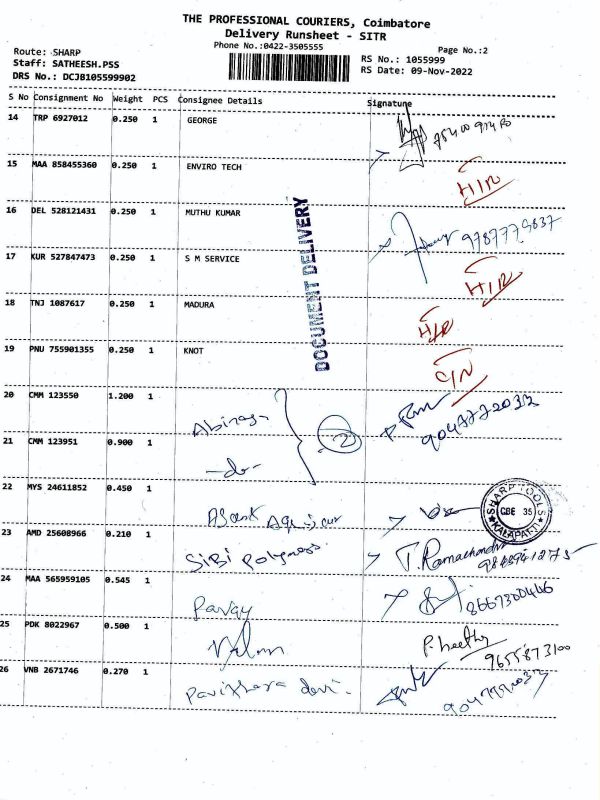 THE PROFESSIONAL COURIERS, Coimbatore
Delivery Runsheet - SITR
Phone No.:0422-3505555
Page No.:2
Route: SHARP
RS No.: 1055999
Staff: SATHEESH.PSS
RS Date: 09-Nov-2022
DRS No.: DCJB105599902
S No Consignment No Weight PCS Consignee Details Signature
14 TRP 6927012 0.250 1 GEORGE
15 MAA 858455360 0.250 1 ENVIRO TECH
H/R
16 DEL 528121431 0.250 1 MUTHU KUMAR
17 KUR 527847473 0.250 1 S M SERVICE
H/R
18 TNJ 1087617 0.250 1 MADURA
H/R
19 PNU 755901355 0.250 1 KNOT
C/N
DOCUMENT DELIVERY
20 CMM 123550 1.200 1
2
21 CMM 123951 0.900 1 -do-
22 MYS 24611852 0.450 1
SHARP TOOLS
CBE 35
KALAPATTI
23 AMD 25608966 0.210 1 SiBi Polymers T. Ramachandra
24 MAA 565959105 0.545 1
8667300466
25 PDK 8022967 0.500 1
9655873100
26 VNB 2671746 0.270 1 Pavithera devi.